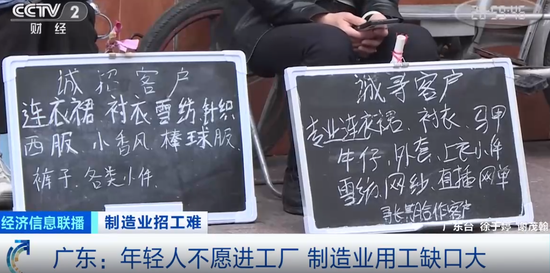 CCTV 2
财经
诚招客户
连衣裙 衬衣 雪纺 针织
西服 小香风 棒球服
裤子、各类小件.
诚寻客户
专业连衣裙、衬衣、马甲
牛仔、外套、上衣小件
雪纺、网纱、直播、网单
寻长期合作客户
经济信息联播
制造业招工难
广东台 徐子婷 谢茂翰
广东：年轻人不愿进工厂 制造业用工缺口大